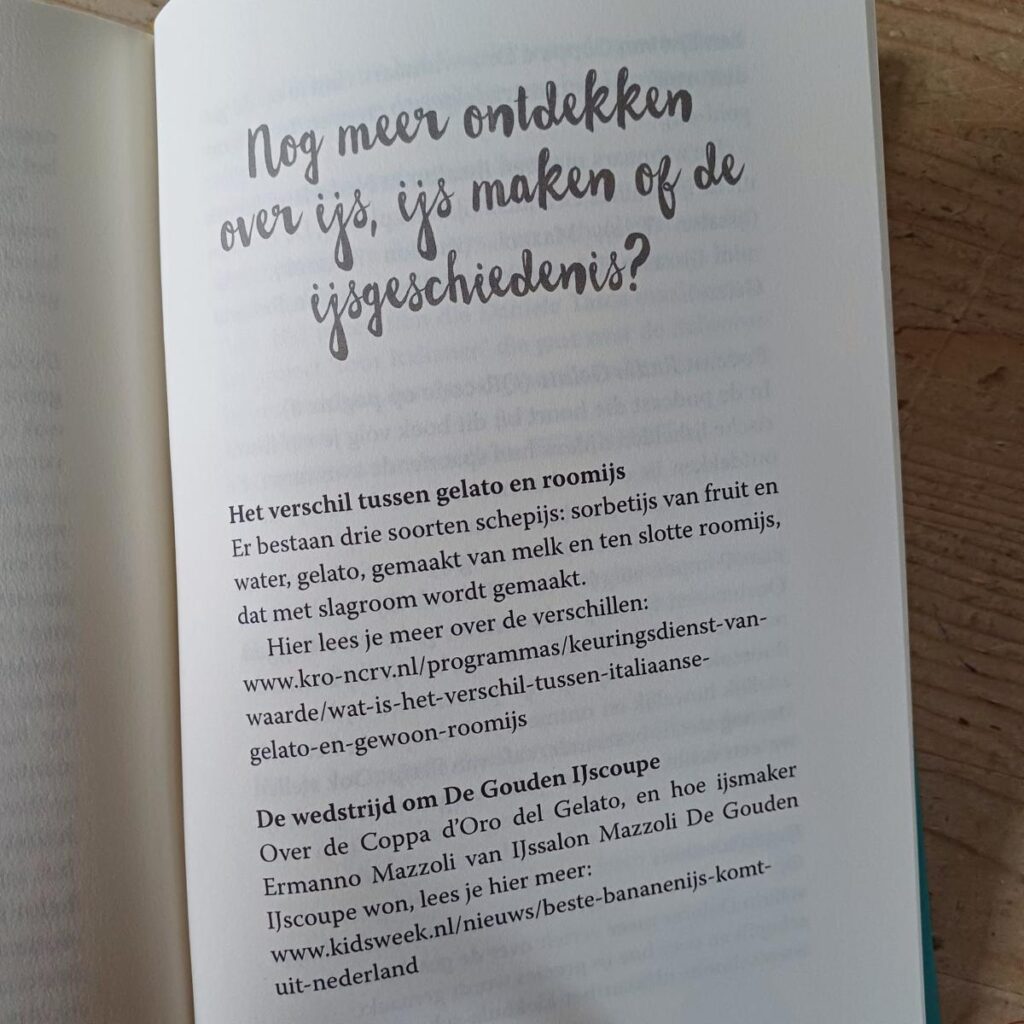 Nog meer ontdekken
over ijs, ijs maken of de
ijsgeschiedenis?
Het verschil tussen gelato en roomijs
Er bestaan drie soorten schepijs: sorbetijs van fruit en
water, gelato, gemaakt van melk en ten slotte roomijs,
dat met slagroom wordt gemaakt.
Hier lees je meer over de verschillen:
www.kro-ncrv.nl/programmas/keuringsdienst-van-
waarde/wat-is-het-verschil-tussen-italiaanse-
gelato-en-gewoon-roomijs
De wedstrijd om De Gouden IJscoupe
Over de Coppa d'Oro del Gelato, en hoe ijsmaker
Ermanno Mazzoli van IJssalon Mazzoli De Gouden
IJscoupe won, lees je hier meer:
www.kidsweek.nl/nieuws/beste-bananenijs-komt-
uit-nederland